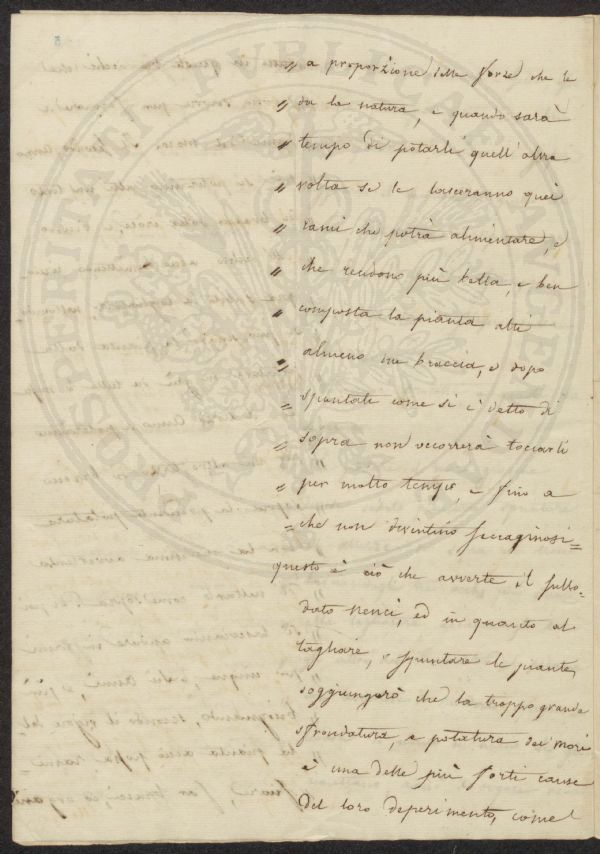 " a proporzione delle forze che le
" da la natura, e quando sarà
" tempo di potarli quell'altra
" volta se le lasceranno quei
" rami che potrà alimentare, e
" che rendono più bella, e ben
" composta la pianta alti
" almeno tre braccia, e dopo
= spuntati come si è detto di
= sopra non occorrerà toccarli
= per molto tempo, e fino a
= che non divintino seccaginosi=
questo è ciò che avverte il sullo-
dato Nenci, ed in quanto al
tagliare, e spuntare le piante,
soggiungerò che la troppo grande
sfrondatura, e potatura dei mori
è una delle più forti cause
del loro deperimento, come